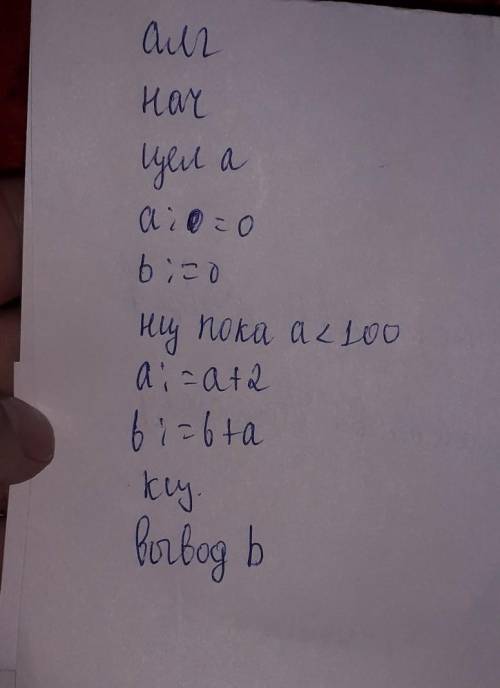 алг
нач
цел a
a:=0
b:=0
нц пока a<100
a:=a+2
b:=b+a
кц.
вывод b